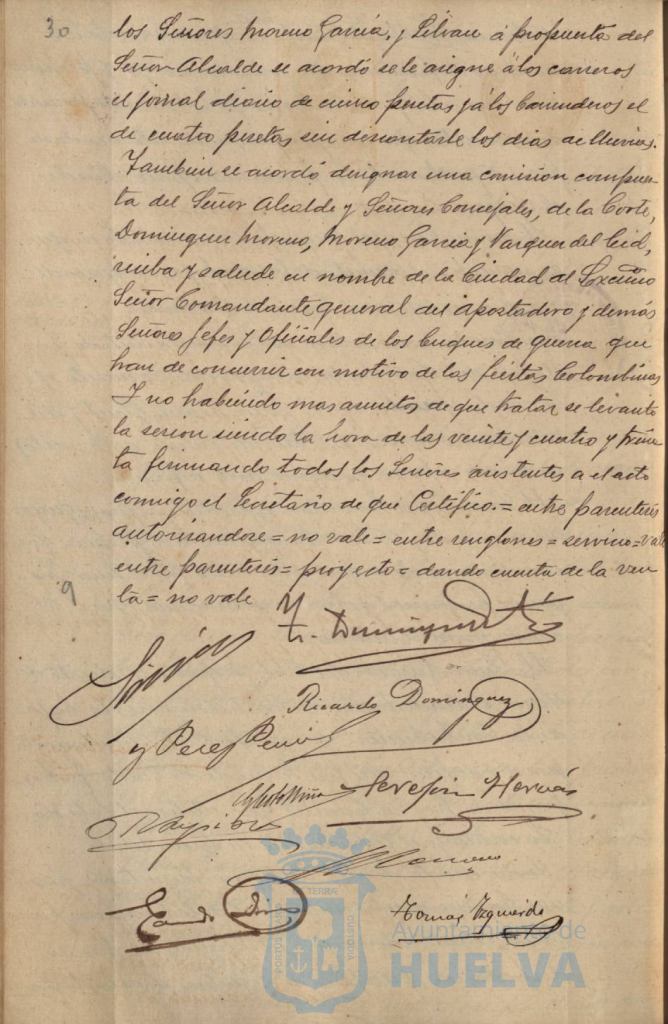 30
los Señores Moreno García, y Silvan á propuesta del
Señor Alcalde se acordó se le asigne á los carreros
el jornal diario de cinco pesetas y á los barrenderos el
de cuatro pesetas sin descontarle los dias de lluvias.
Tambien se acordó designar una comision compues
ta del Señor Alcalde y Señores Concejales, de la Corte,
Dominguez Moreno, Moreno Garcia y Vazquez del Cid,
reciba y salude en nombre de la Ciudad al Excmo
Señor Comandante general del Apostadero y demás
Señores Jefes y Oficiales de los buques de guerra que
han de concurrir con motivo de las fiestas Colombinas
Y no habiendo mas asuntos de que tratar se levantó
la sesion siendo la hora de las veinte y cuatro y trein
ta firmando todos los Señores asistentes a el acto
conmigo el Secretario de que Certifico.= entre parentesis
autorizandose = no vale = entre renglones = servicio = vale
entre parentesis = proyecto = dando cuenta de la ven
ta = no vale
9
Ricardo Dominguez
y Perez
Serefin Hervás
Moreno
Tomás Izquierdo
TERRÆ
PORTUS
CUSTODIA
Ayuntamiento de
HUELVA